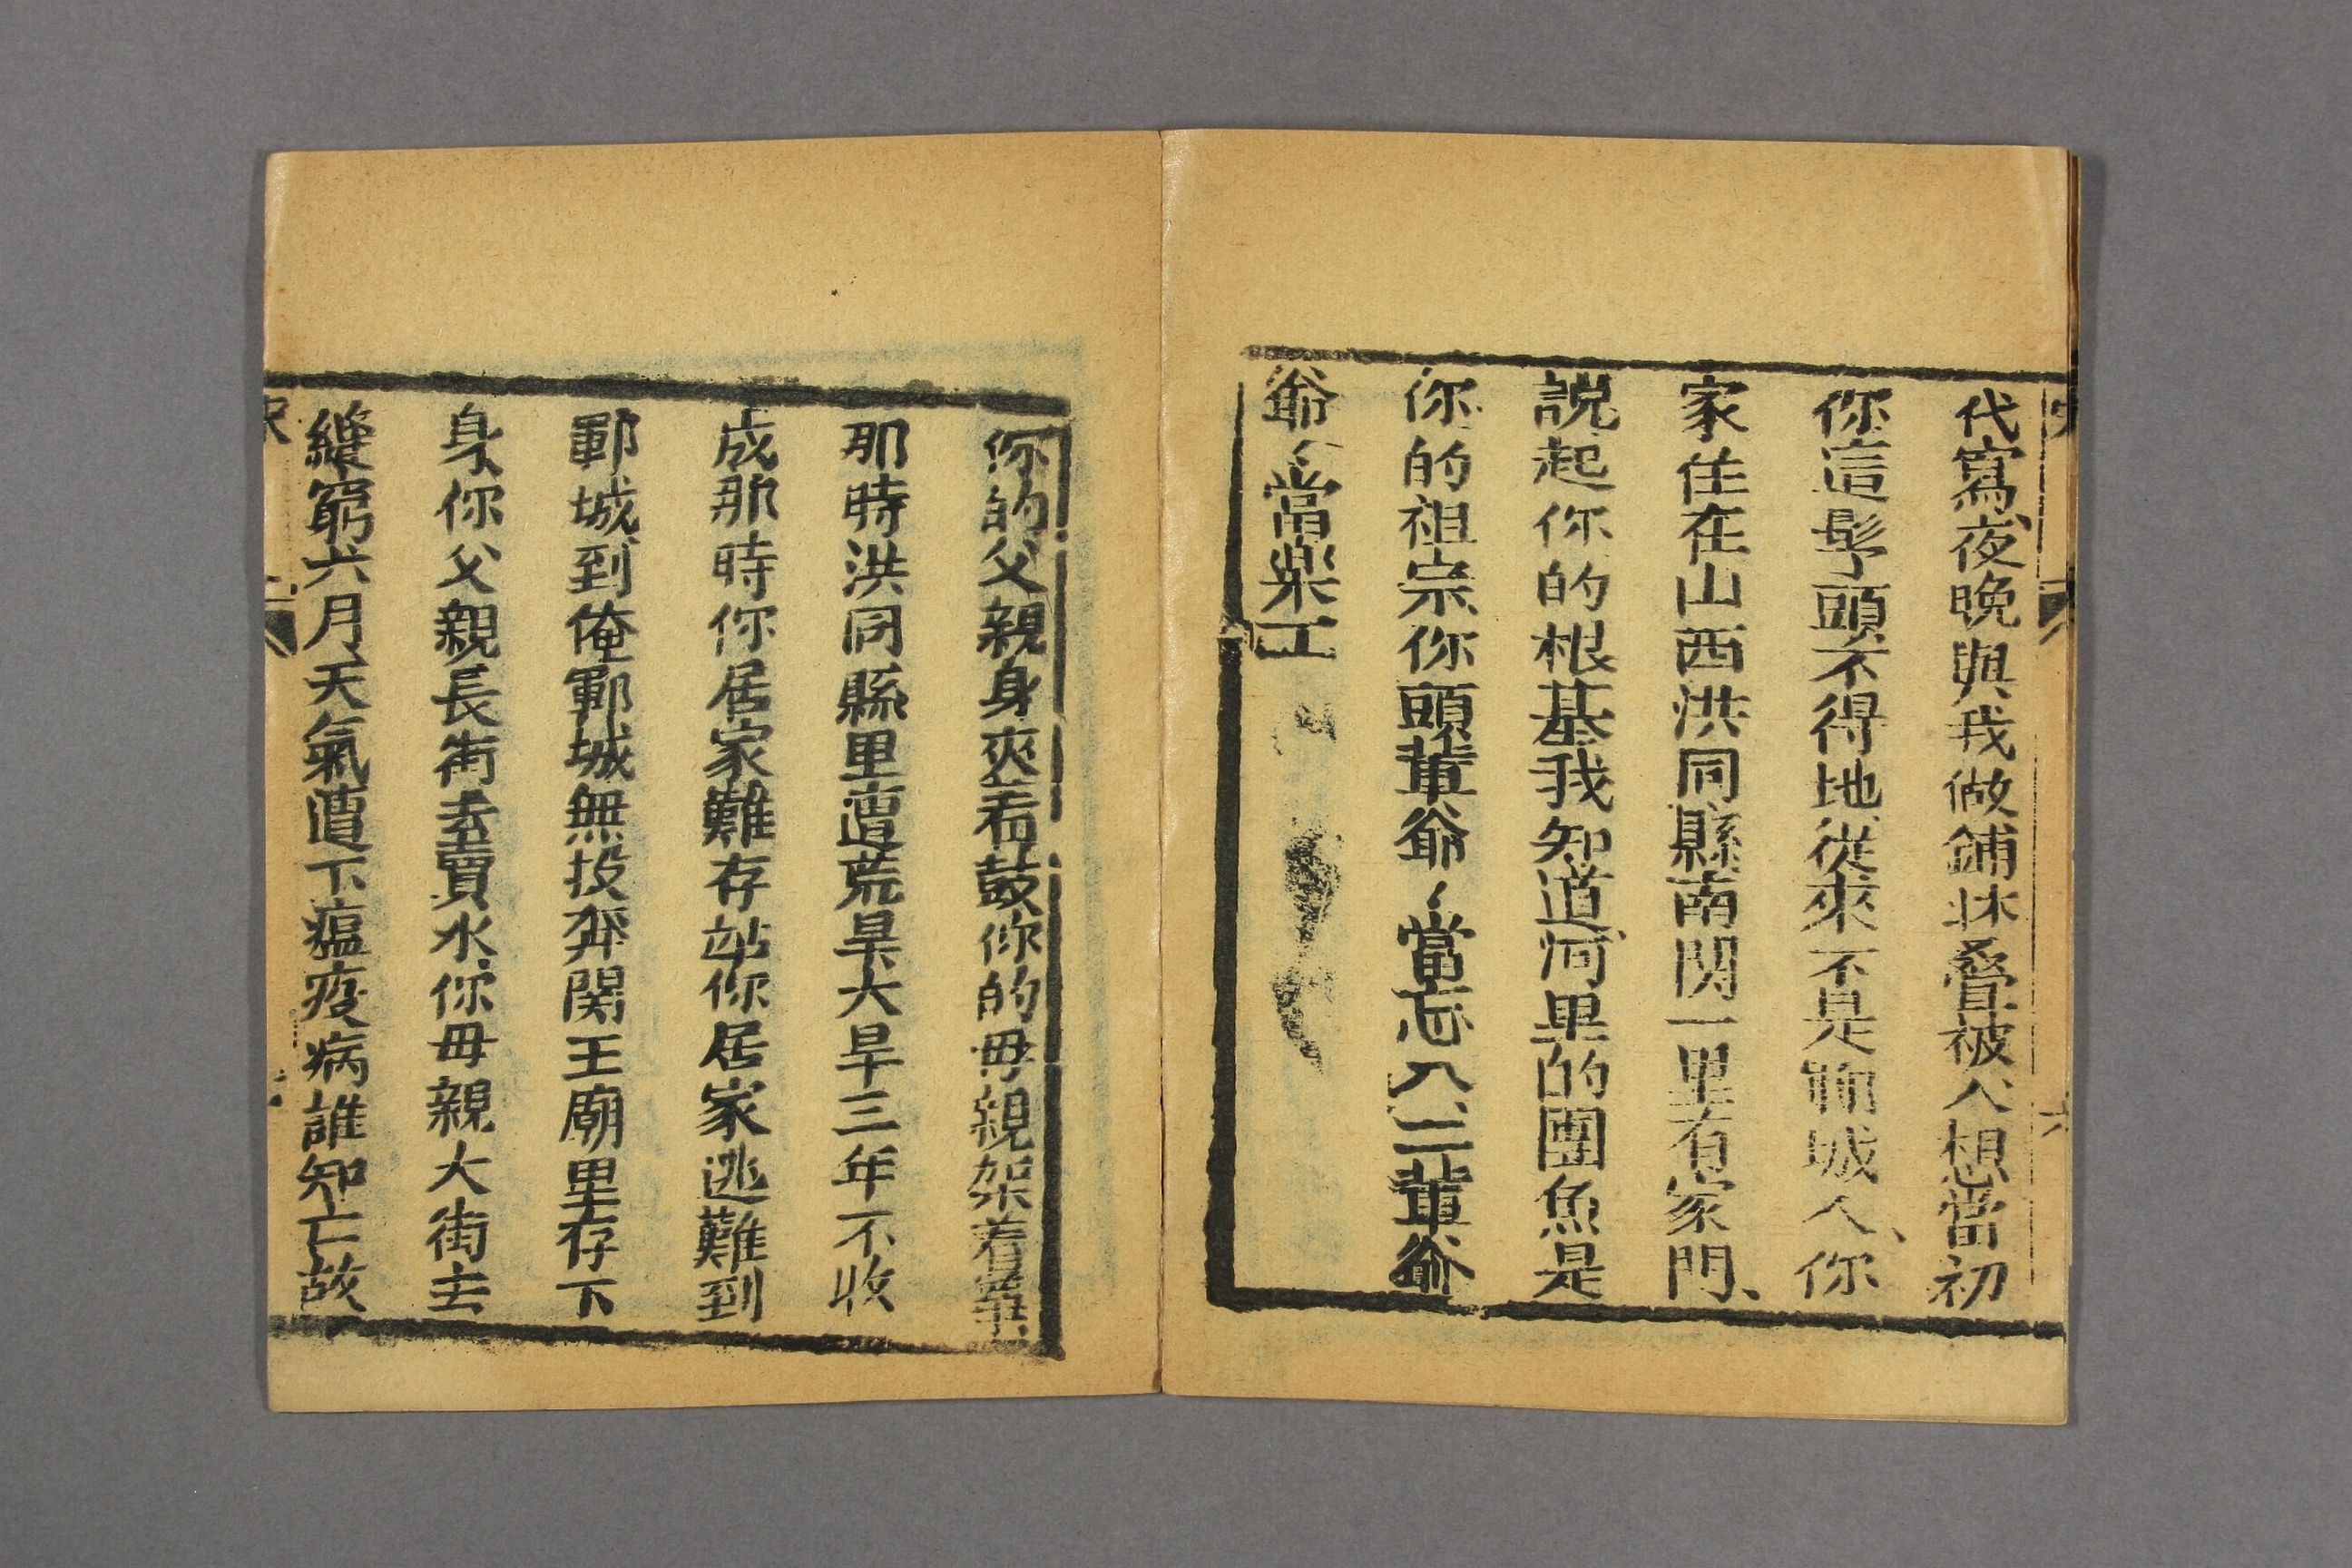 代寫夜晚與我做鋪床叠被人想當初
你這髩頭不得地從來不是鄆城人、你
家住在山西洪同縣南関一里有家門、
說起你的根基我知道河里的團魚是
你的祖宗你頭輩爺〻當忘八二輩爺
爺〻當柴工
你的父親身夾着鼓你的母親架着
那時洪同縣里遭荒旱大旱三年不收
成那時你居家難存站你居家逃難到
鄆城到俺鄆城無投奔関王廟里存下
身你父親長街去賣水你母親大街去
縫窮六月天氣遭下瘟疫病誰知亡故